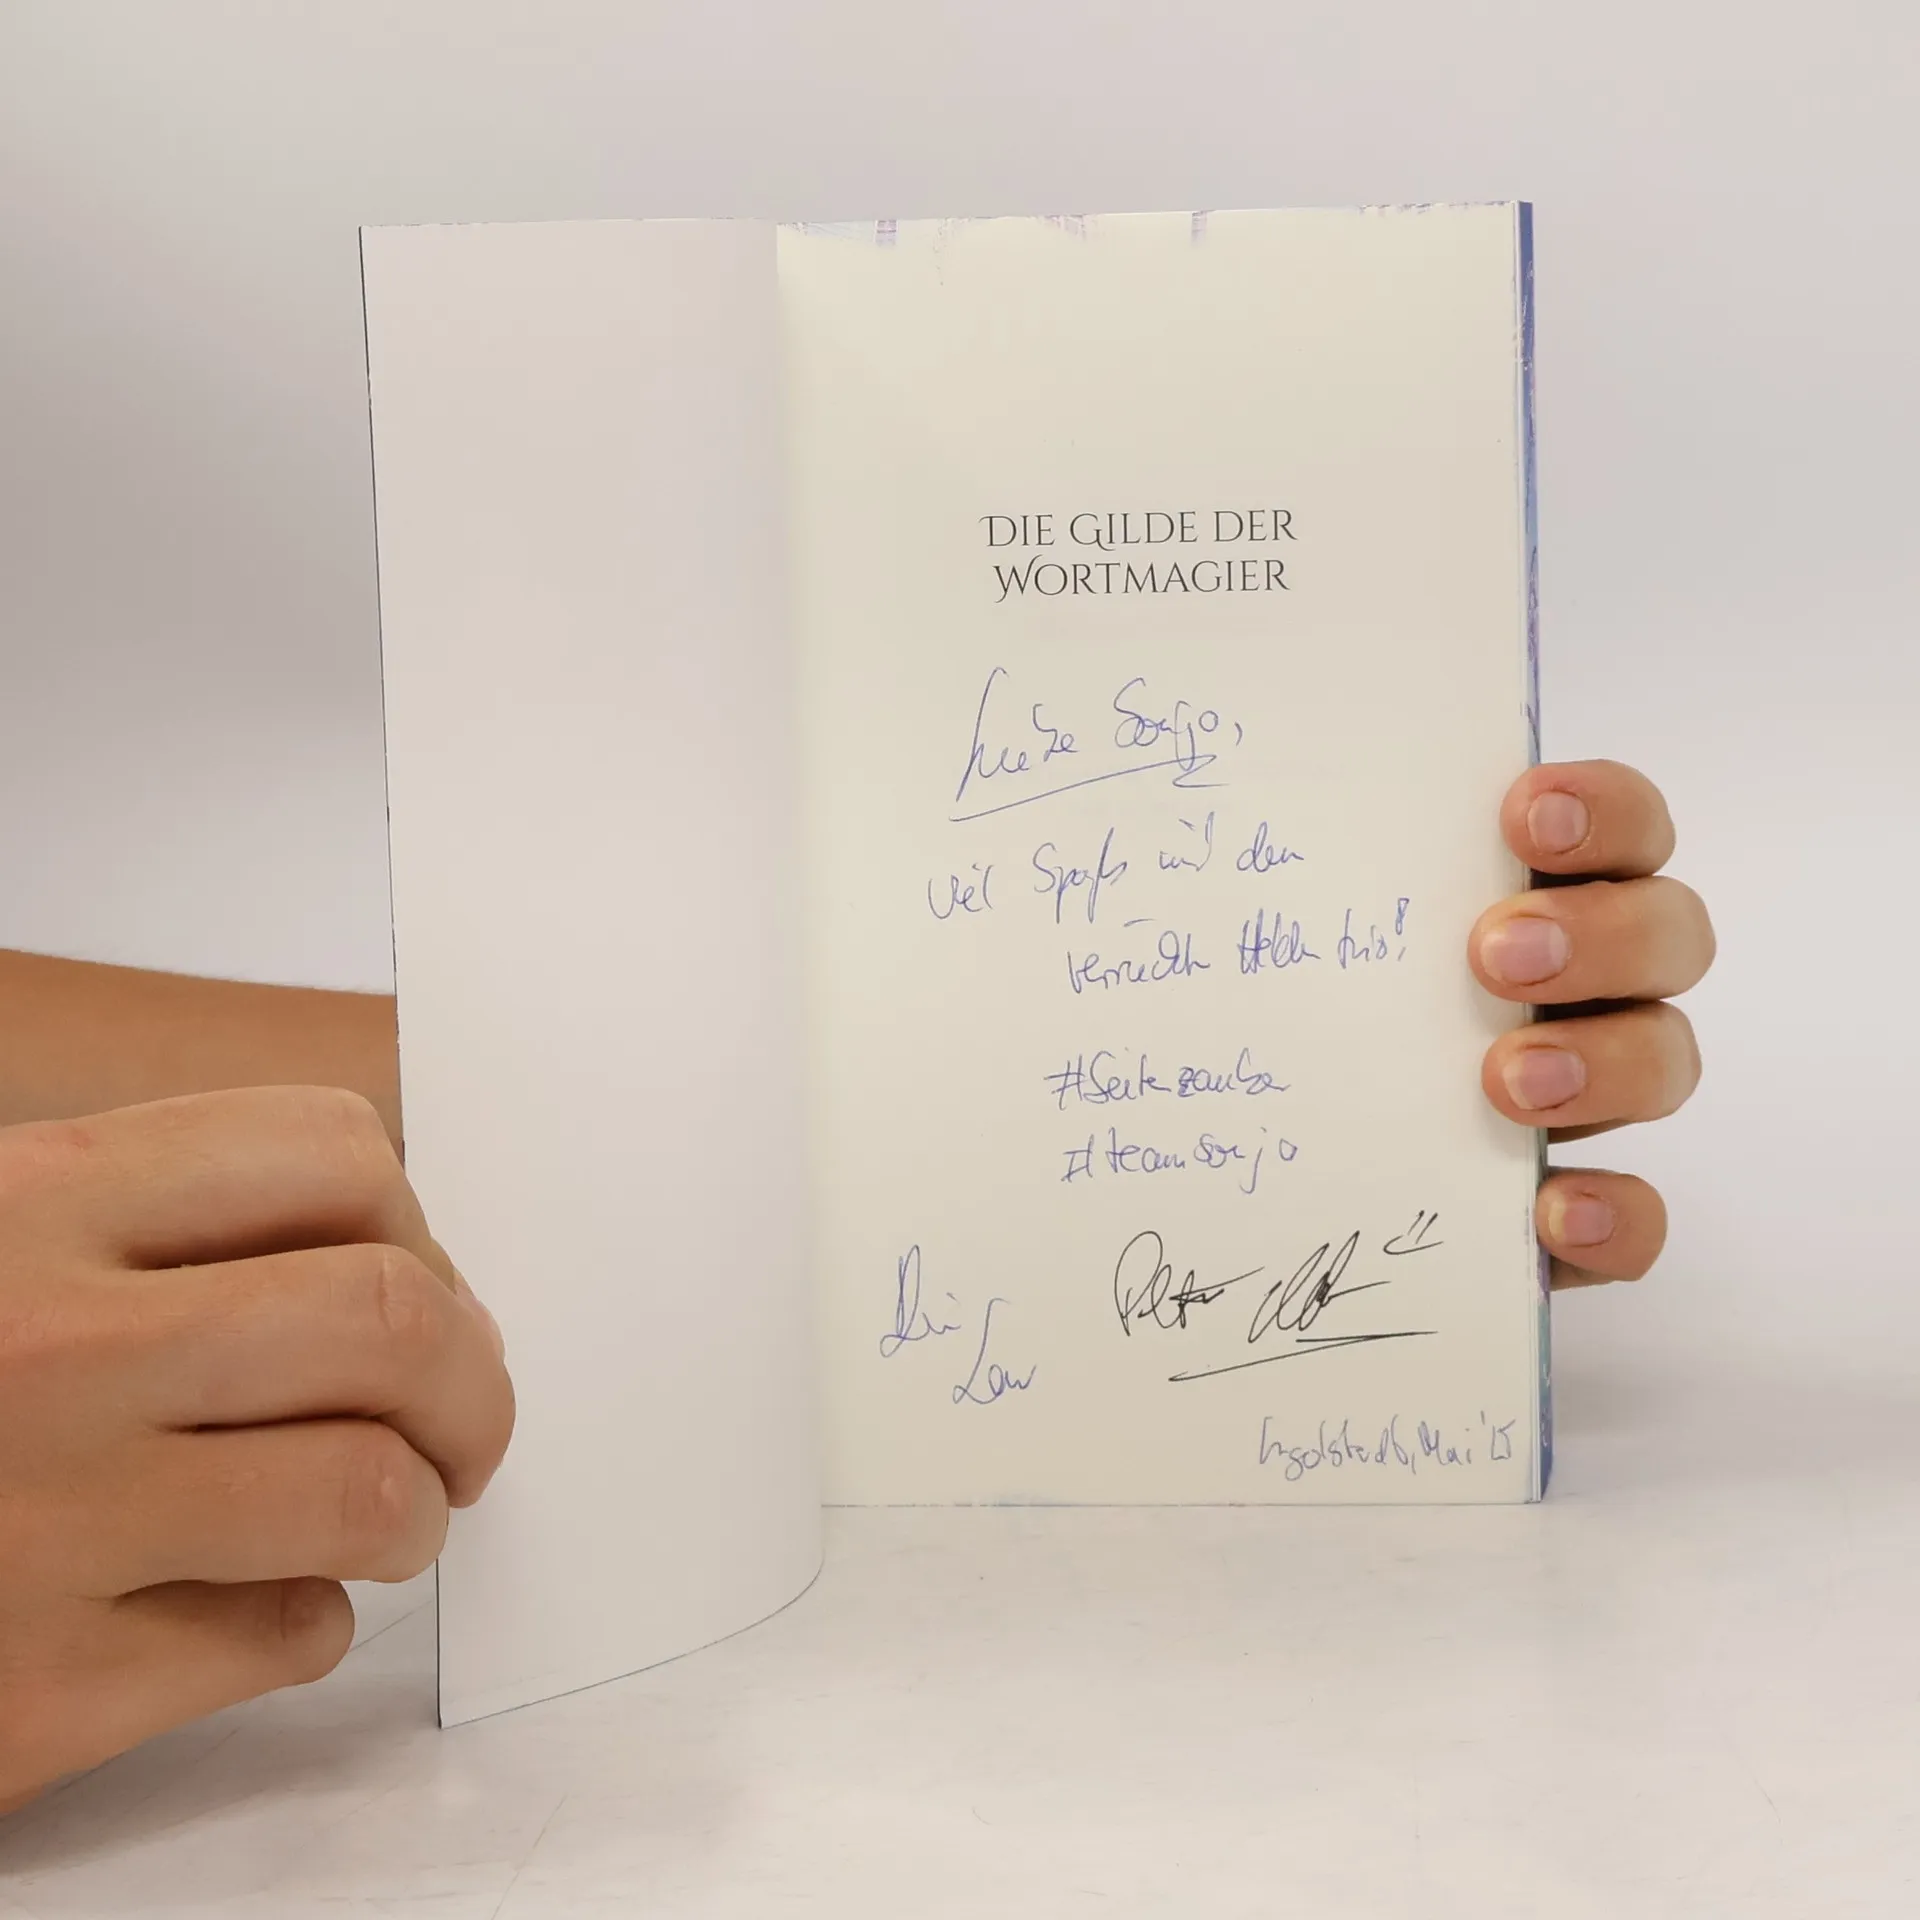 DIE GILDE DER
WORTMAGIER
Liebe Sonja,
viel Spaß mit den
verrückten Heldentrio!
#Seitenzauber
#teamsonja
Dein
Peter
Ingolstadt, Mai '25